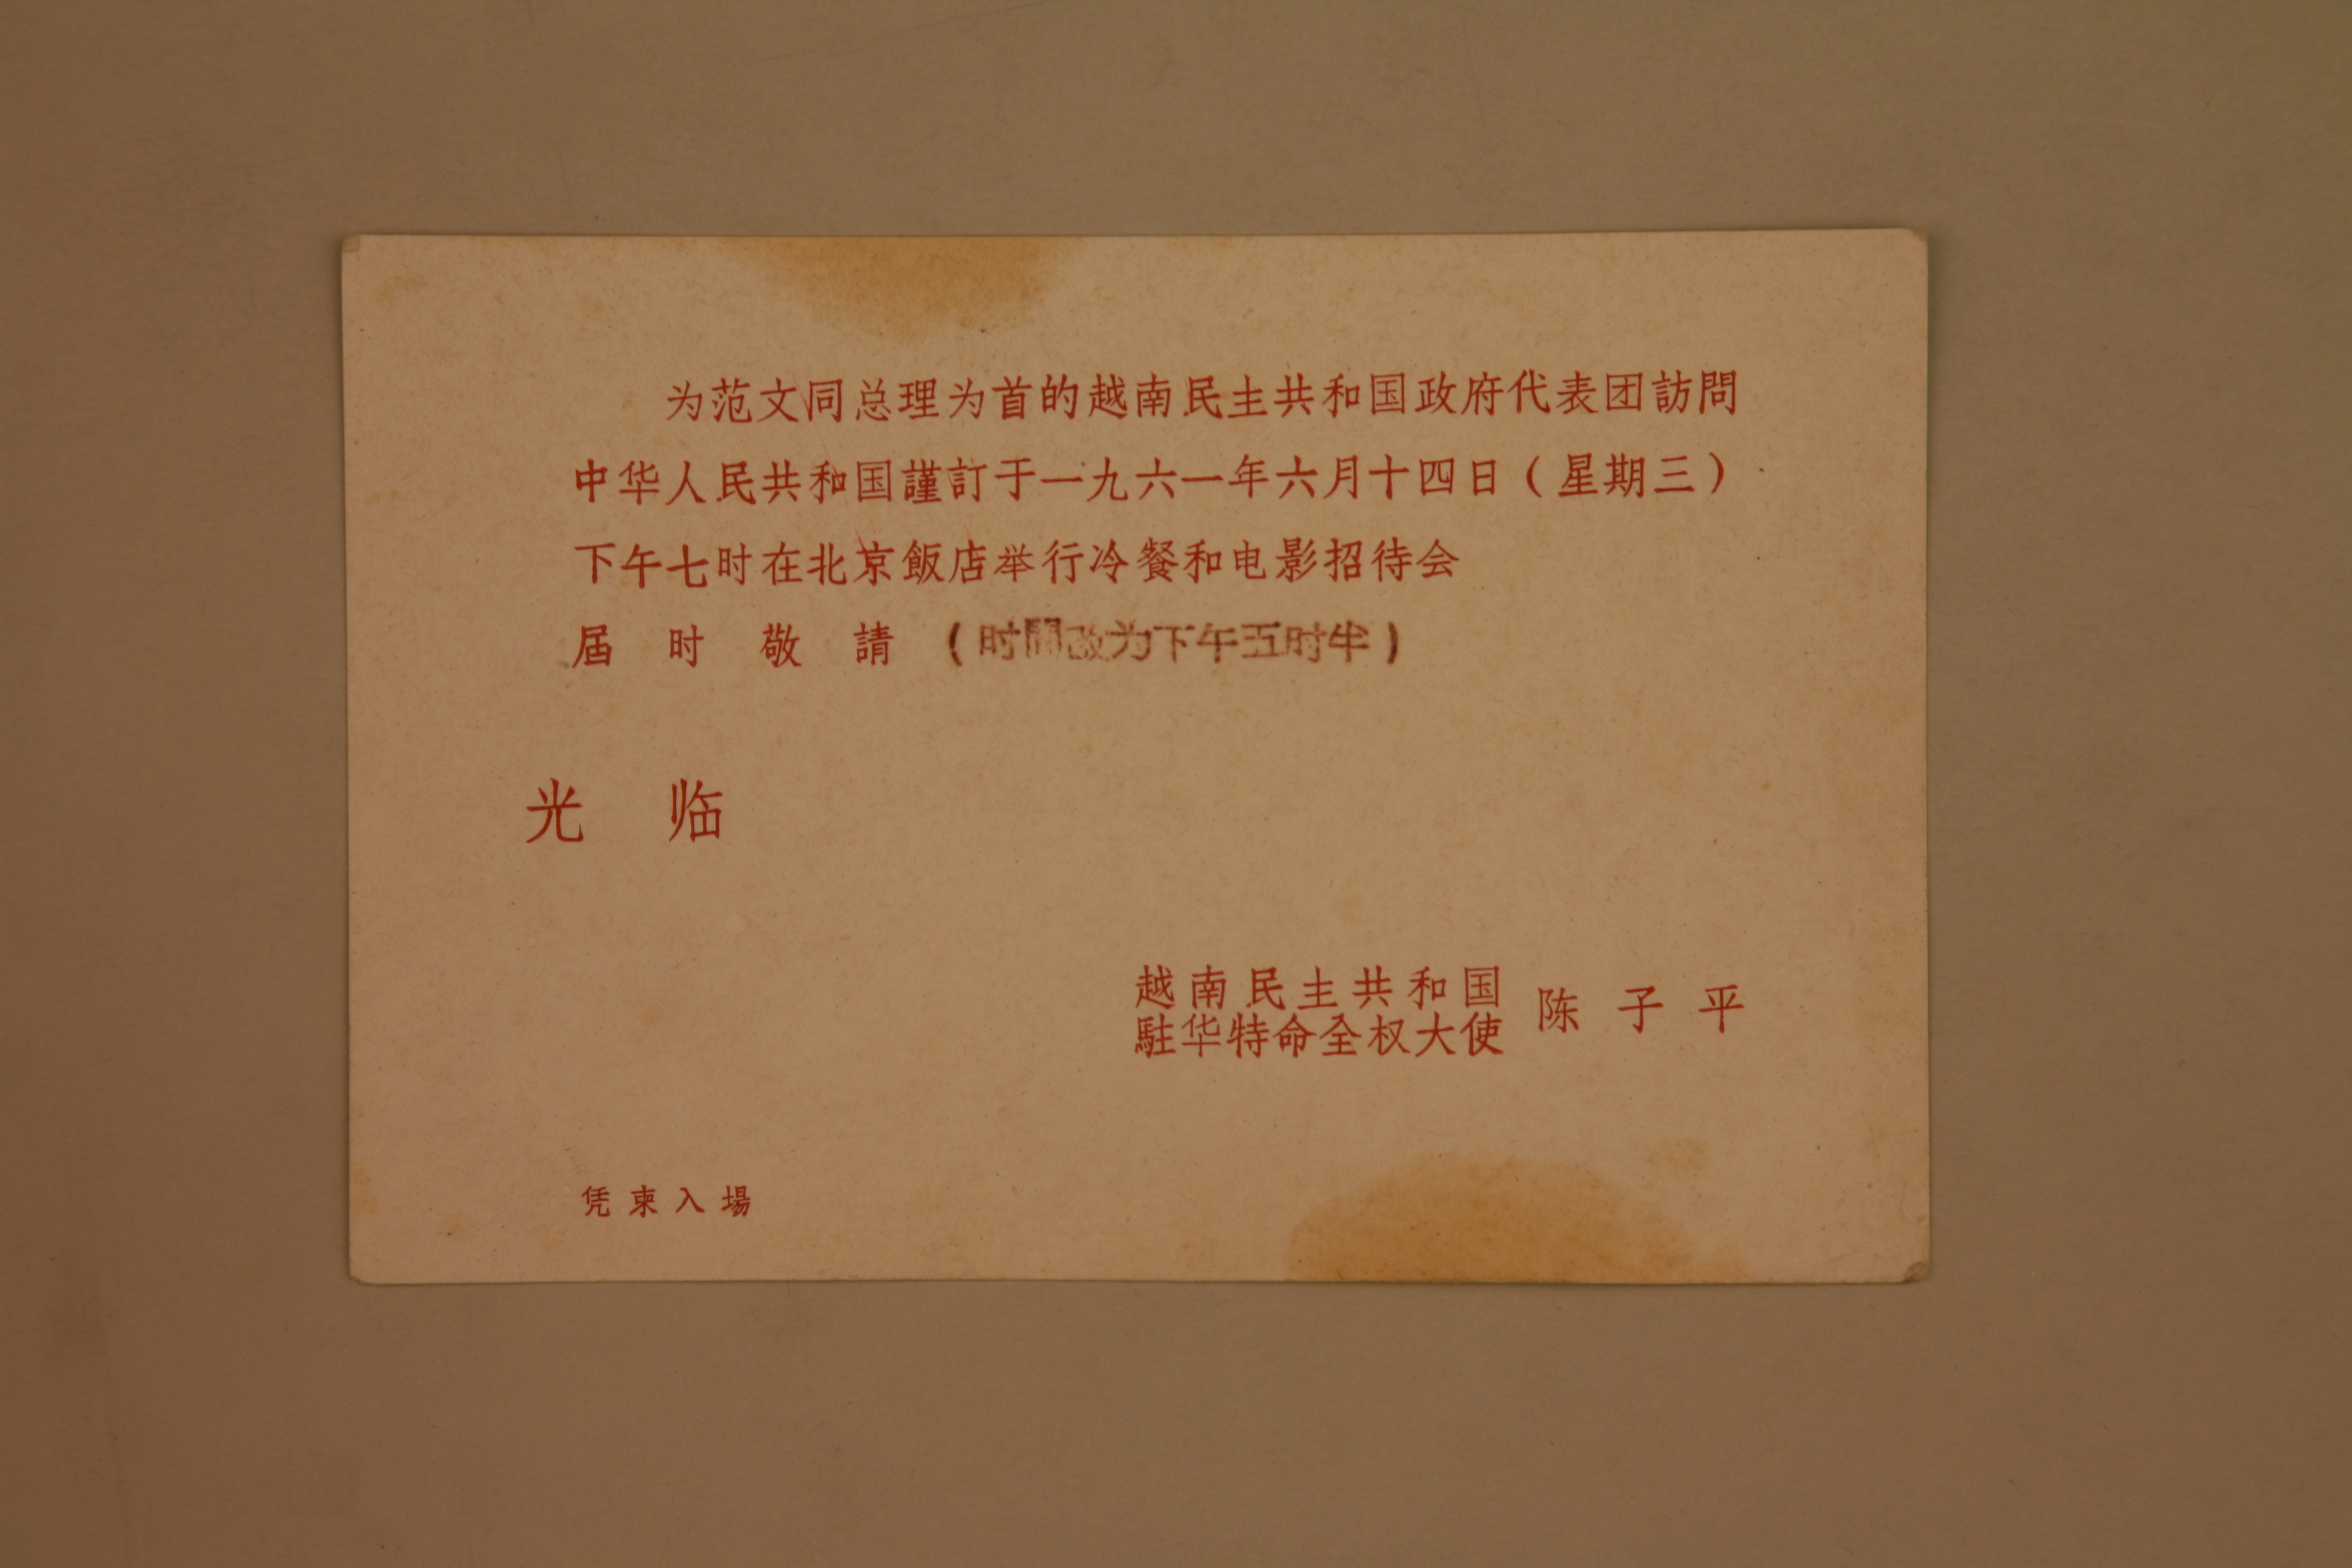 为范文同总理为首的越南民主共和国政府代表团訪問
中华人民共和国謹訂于一九六一年六月十四日（星期三）
下午七时在北京飯店举行冷餐和电影招待会
届时敬請（时間改为下午五时半）
光临
越南民主共和国
駐华特命全权大使
陈子平
凭柬入場